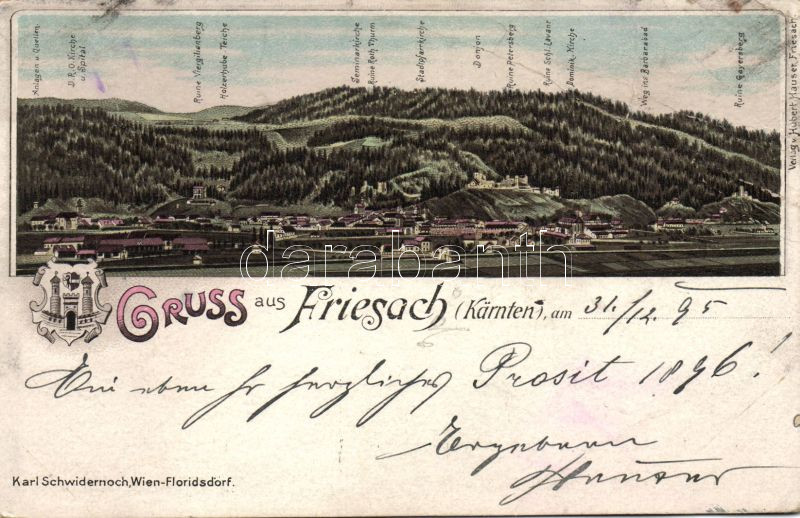 Anlagen u. Quellen
D.R.O. Kirche
u. Spital
Ruine Virgilienberg
Holzerhube-Teiche
Seminarkirche
Ruine Roth Thurm
Stadtpfarrkirche
Donjon
Ruine Petersberg
Ruine Schl. Lavant
Dominik. Kirche
Weg ins Barbarabad
Ruine Geyersberg
Verlag v. Hubert Hauser, Friesach.
darabanth
GRUSS aus Friesach (Kärnten), am 31./12. 95
Ein eben so herzliches Prosit 1896!
Ergebenen
Hauser
Karl Schwidernoch, Wien-Floridsdorf.